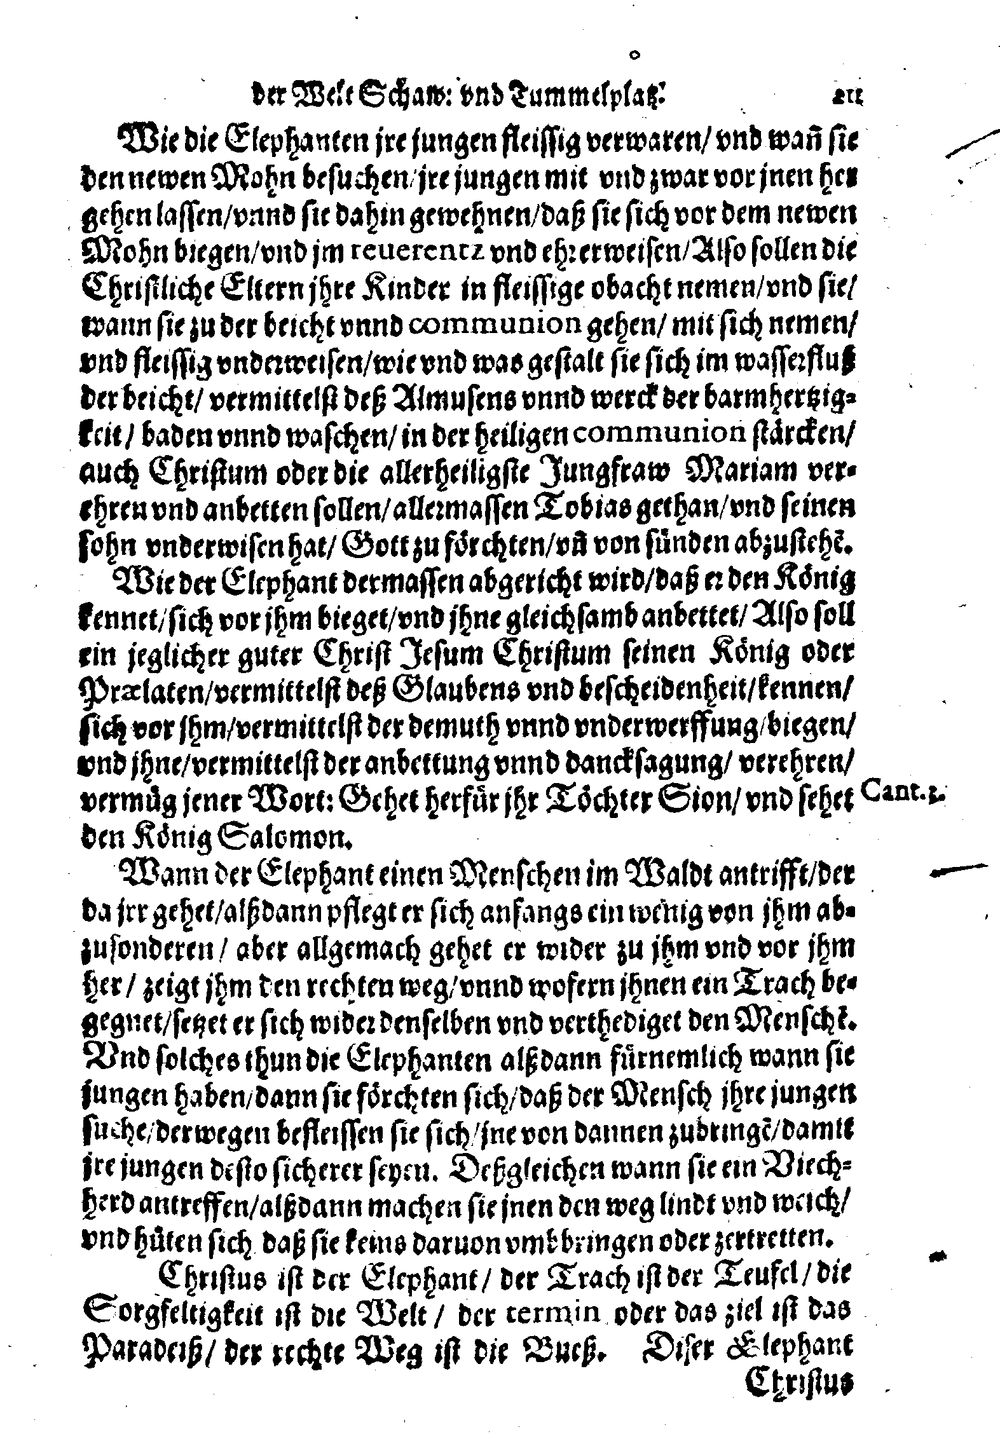 der Welt Schaw: vnd Tummelplatz. 211
Wie die Elephanten jre jungen fleissig verwaren/ vnd wañ sie
den newen Mohn besuchen/ jre jungen mit vnd zwar vor jnen her
gehen lassen/ vnnd sie dahin gewehnen/ daß sie sich vor dem newen
Mohn biegen/ vnd jm reuerentz vnd ehr erweisen/ Also sollen die
Christliche Eltern jhre Kinder in fleissige obacht nemen/ vnd sie/
wann sie zu der beicht vnnd communion gehen/ mit sich nemen/
vnd fleissig vnderweisen/ wie vnd was gestalt sie sich im wasserfluß
der beicht/ vermittelst deß Almusens vnnd werck der barmhertzig-
keit/ baden vnnd waschen/ in der heiligen communion stärcken/
auch Christum oder die allerheiligste Jungfraw Mariam ver-
ehren vnd anbetten sollen/ allermassen Tobias gethan/ vnd seinen
sohn vnderwisen hat/ Gott zu förchten/ vñ von sünden abzustehẽ.
Wie der Elephant dermassen abgericht wird/ daß er den König
kennet/ sich vor jhm bieget/ vnd jhne gleichsamb anbettet/ Also soll
ein jeglicher guter Christ Jesum Christum seinen König oder
Prælaten/ vermittelst deß Glaubens vnd bescheidenheit/ kennen/
sich vor jhm/ vermittelst der demuth vnnd vnderwerffung/ biegen/
vnd jhne/ vermittelst der anbettung vnnd dancksagung/ verehren/
vermüg jener Wort: Gehet herfür jhr Töchter Sion/ vnd sehet Cant. 3.
den König Salomon.
Wann der Elephant einen Menschen im Waldt antrifft/ der
da jrr gehet/ alßdann pflegt er sich anfangs ein wenig von jhm ab-
zusonderen/ aber allgemach gehet er wider zu jhm vnd vor jhm
her/ zeigt jhm den rechten weg/ vnnd wofern jhnen ein Trach be-
gegnet/ setzet er sich wider denselben vnd verthediget den Menschẽ.
Vnd solches thun die Elephanten alßdann fürnemlich wann sie
jungen haben/ dann sie förchten sich/ daß der Mensch jhre jungen
suche/ derwegen befleissen sie sich/ jne von dannen zubringẽ/ damit
jre jungen desto sicherer seyen. Deßgleichen wann sie ein Viech-
herd antreffen/ alßdann machen sie jnen den weg lindt vnd weich/
vnd hüten sich daß sie keins daruon vmbbringen oder zertretten.
Christus ist der Elephant/ der Trach ist der Teufel/ die
Sorgfeltigkeit ist die Welt/ der termin oder das ziel ist das
Paradeiß/ der rechte Weg ist die Bueß. Diser Elephant
Christus